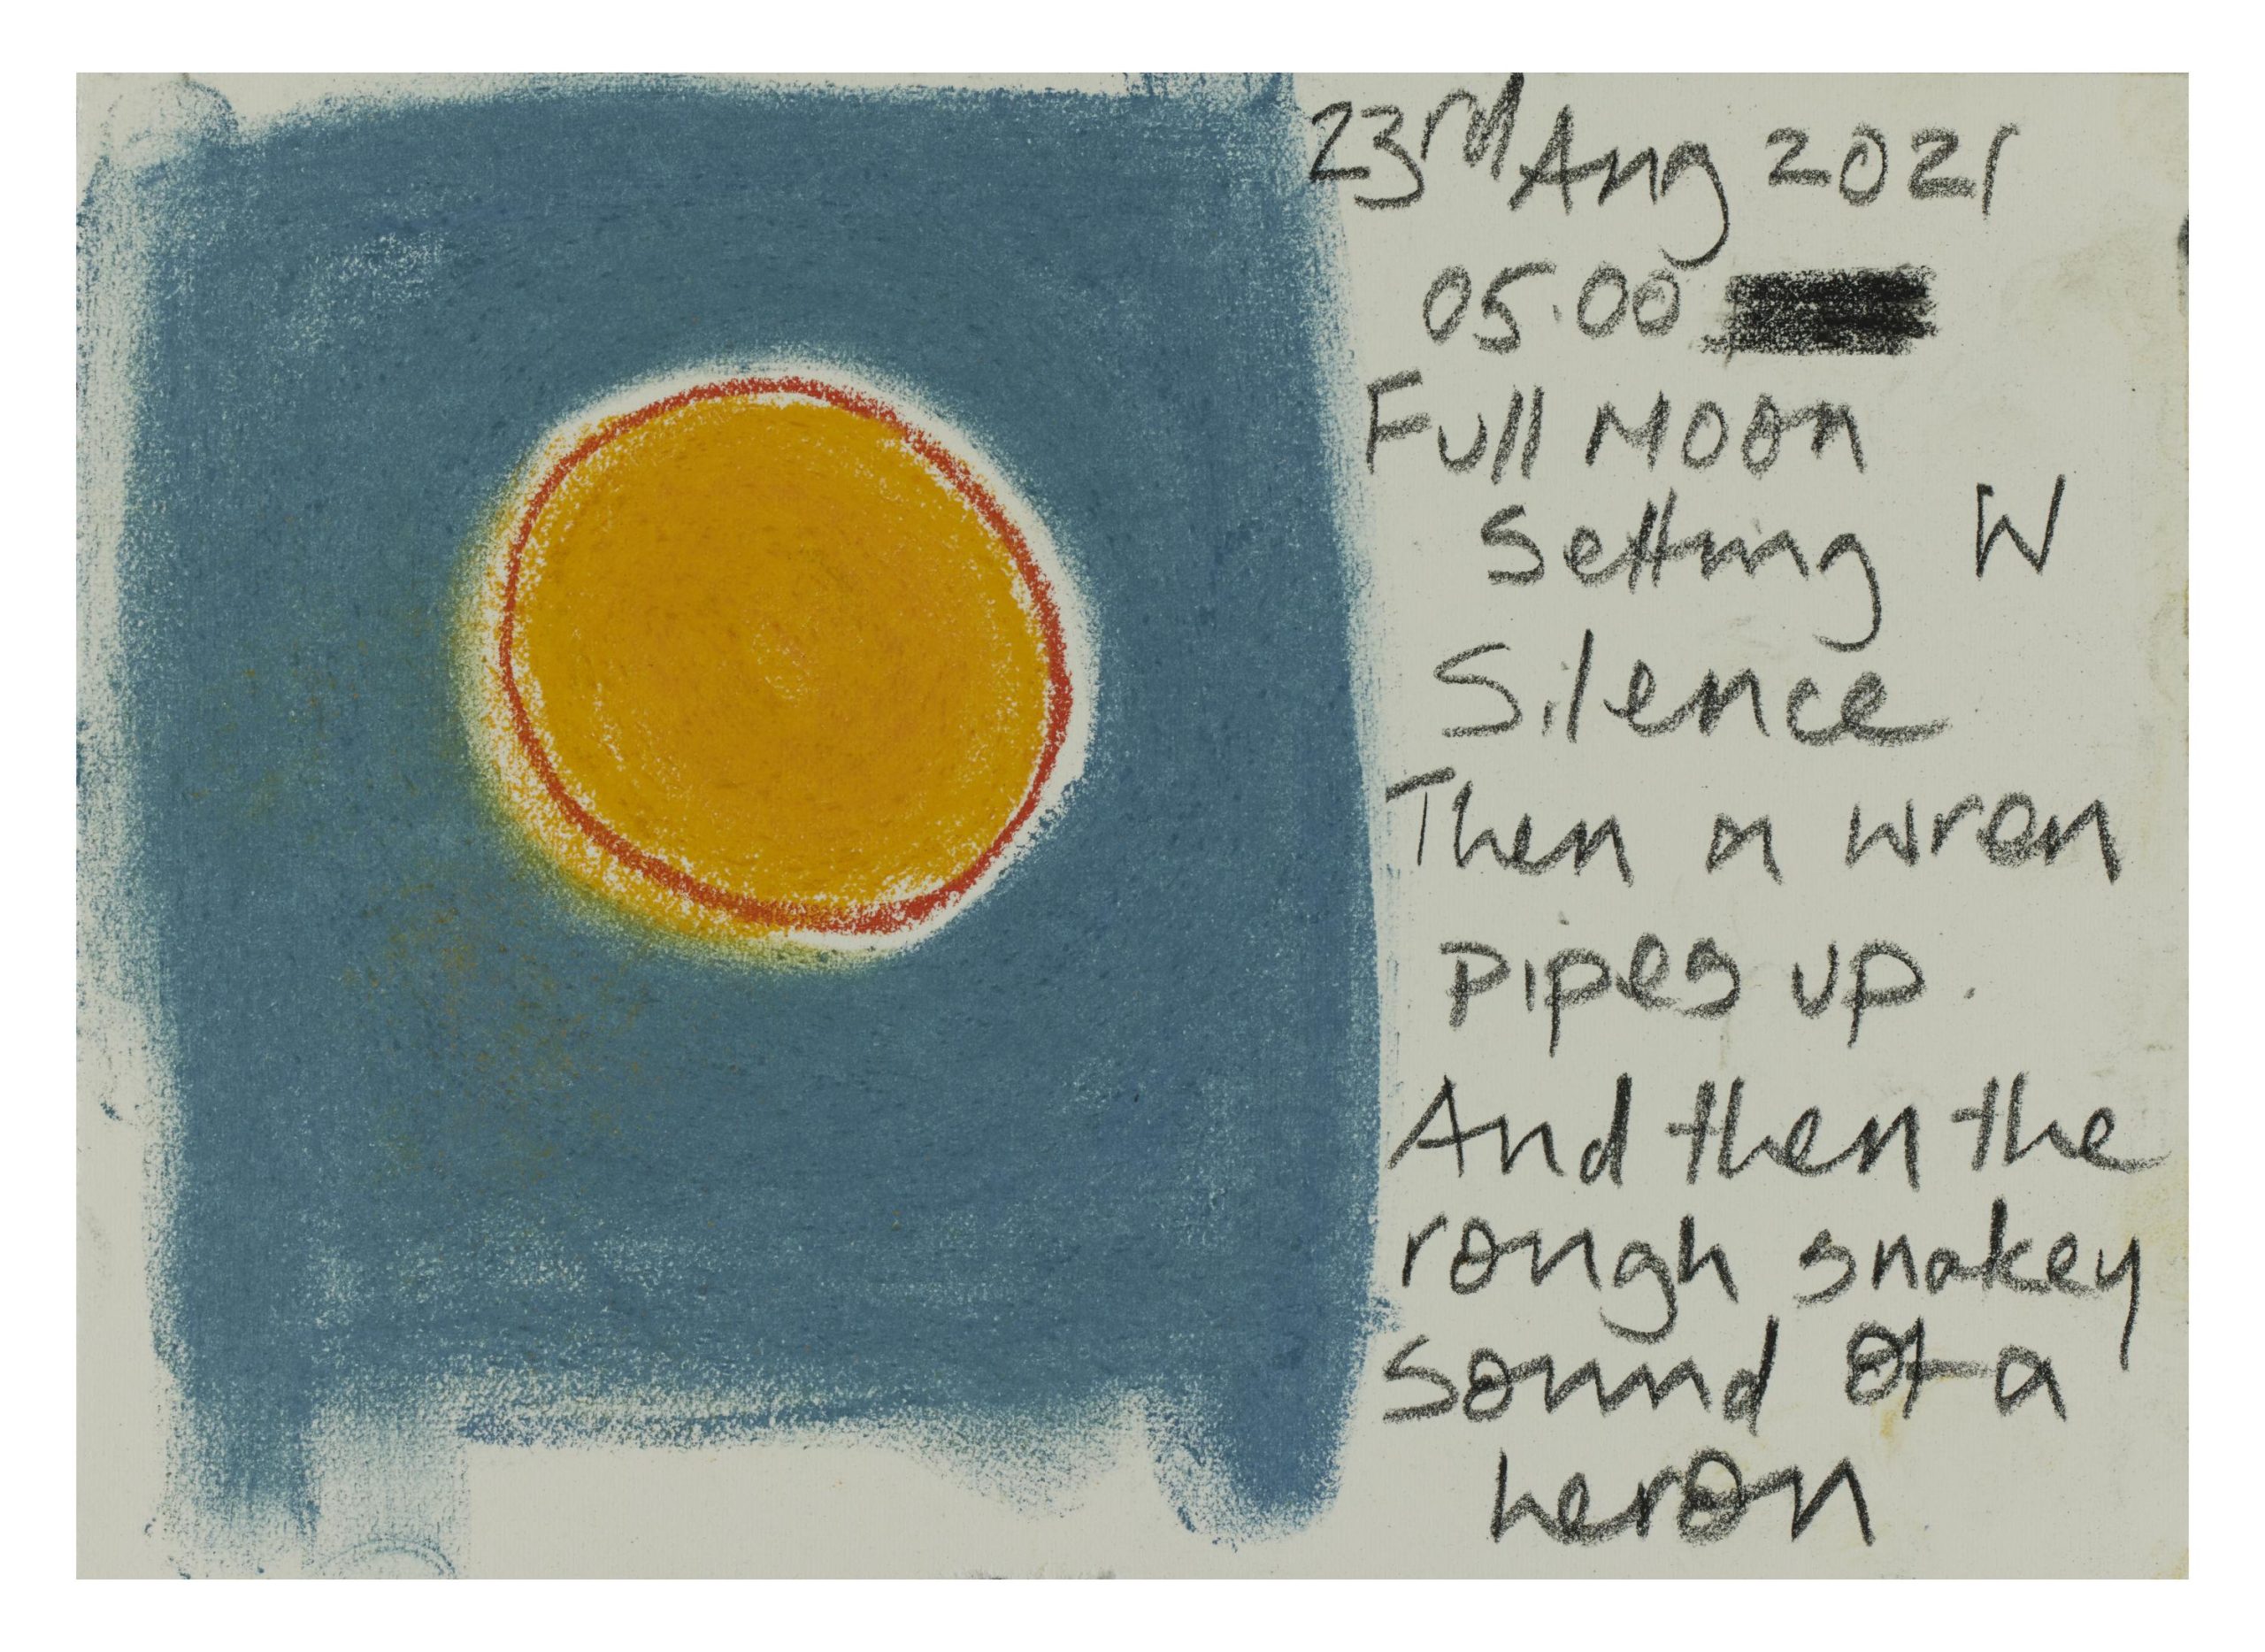 23rd Aug 2021
05.00
Full Moon
Setting W
Silence
Then a wren
pipes up.
And then the
rough snakey
sound of a
heron